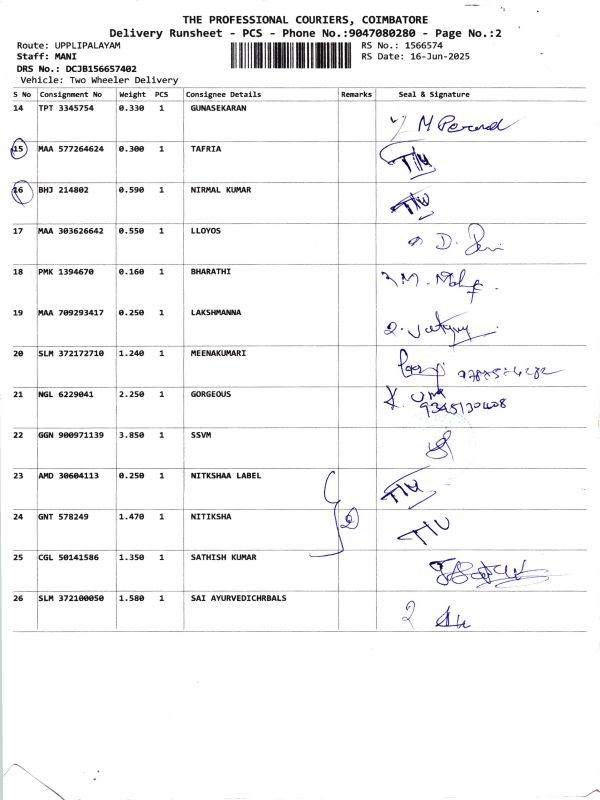 THE PROFESSIONAL COURIERS, COIMBATORE
Delivery Runsheet - PCS - Phone No.:9047080280 - Page No.:2
Route: UPPLIPALAYAM RS No.: 1566574
Staff: MANI RS Date: 16-Jun-2025
DRS No.: DCJB156657402
Vehicle: Two Wheeler Delivery
S No Consignment No Weight PCS Consignee Details Remarks Seal & Signature
14 TPT 3345754 0.330 1 GUNASEKARAN
15 MAA 577264624 0.300 1 TAFRIA
16 BHJ 214802 0.590 1 NIRMAL KUMAR
17 MAA 303626642 0.550 1 LLOYOS
18 PMK 1394670 0.160 1 BHARATHI
19 MAA 709293417 0.250 1 LAKSHMANNA
20 SLM 372172710 1.240 1 MEENAKUMARI
21 NGL 6229041 2.250 1 GORGEOUS K. UMA
9345130408
22 GGN 900971139 3.850 1 SSVM
23 AMD 30604113 0.250 1 NITKSHAA LABEL
2
24 GNT 578249 1.470 1 NITIKSHA
25 CGL 50141586 1.350 1 SATHISH KUMAR
26 SLM 372100050 1.580 1 SAI AYURVEDICHRBALS